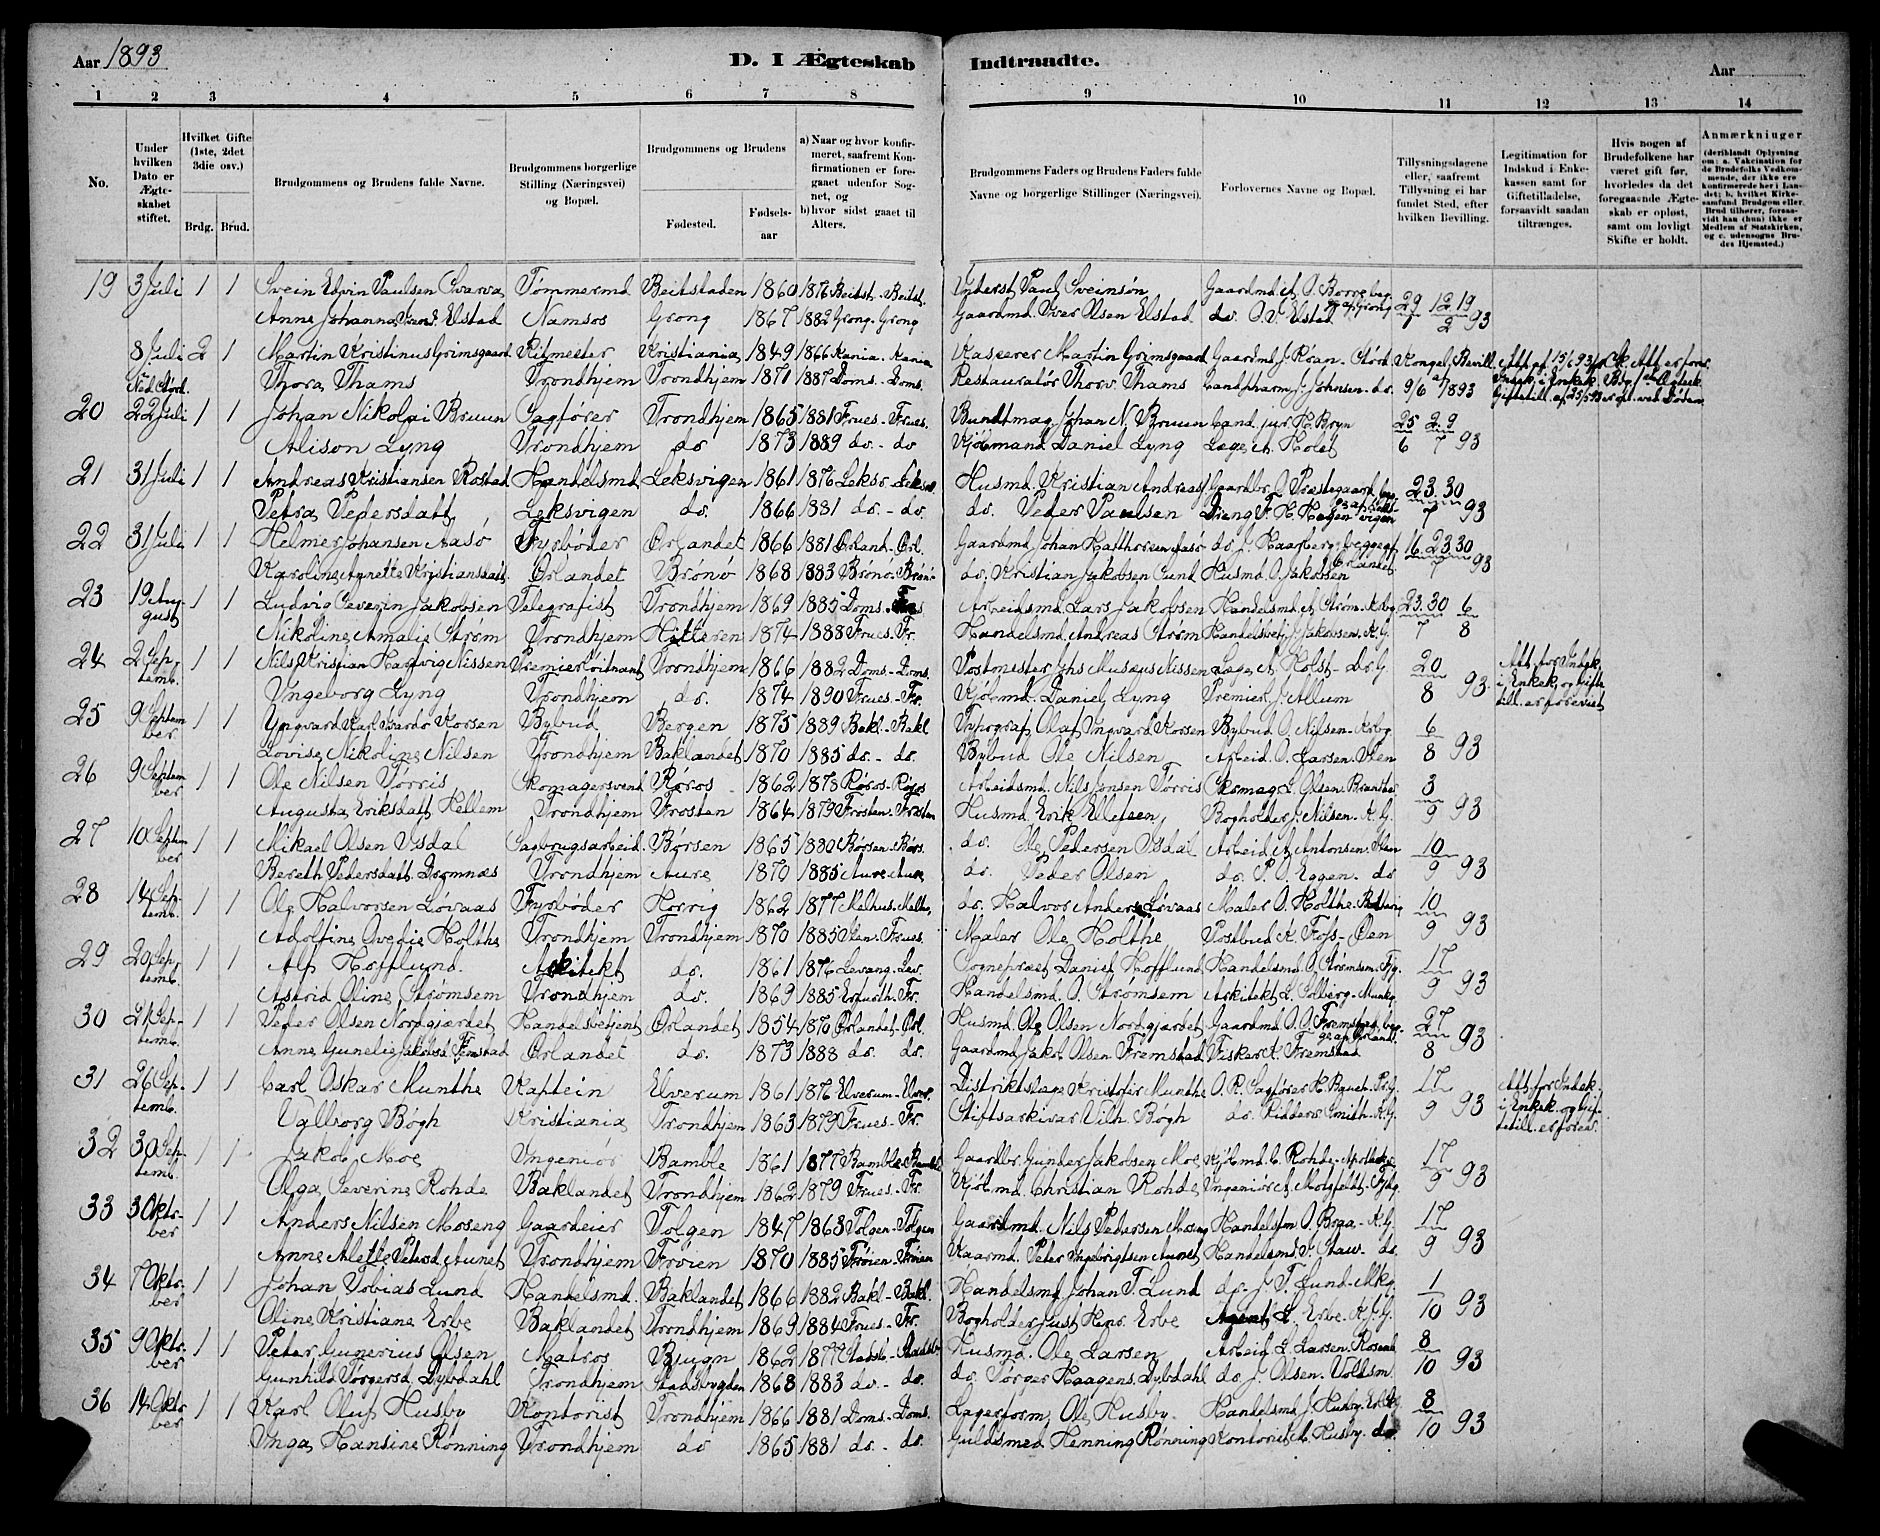 Aar 1893
D. I Ægteskab Indtraadte.
Aar
1 2 3 4 5 6 7 8 9 10 11 12 13 14
No.
Under hvilken Dato er Ægteskabet stiftet.
Hvilket Gifte (1ste, 2det 3die osv.)
Brdg. Brud.
Brudgommens og Brudens fulde Navne.
Brudgommens borgerlige Stilling (Næringsvei) og Bopæl.
Brudgommens og Brudens
Fødested. Fødselsaar
a) Naar og hvor konfirmeret, saafremt Konfirmationen er foregaaet udenfor Sognet, og
b) hvor sidst gaaet til Alters.
Brudgommens Faders og Brudens Faders fulde Navne og borgerlige Stillinger (Næringsvei).
Forlovernes Navne og Bopæl.
Tillysningsdagene eller, saafremt Tillysning ei har fundet Sted, efter hvilken Bevilling.
Legitimation for Indskud i Enkekassen samt for Giftetilladelse, forsaavidt saadan tiltrænges.
Hvis nogen af Brudefolkene har været gift før, hvorledes da det foregaaende Ægteskab er opløst, samt om lovligt Skifte er holdt.
Anmærkninger (deriblandt Oplysning om: a. Vakcination for de Brudefolks Vedkommende, der ikke ere konfirmerede her i Landet; b. hvilket Kirkesamfund Brudgom eller Brud tilhører, forsaavidt han (hun) ikke er Medlem af Statskirken, og c. udensogns Brudes Hjemsted.)
19 3 Juli 1 1 Svein Edvin Paulsen Svarva Tømmermd. Beitstaden 1860 1876 Beitst. - Beitst. Inderst Paul Sveinsøn Gaardmd. A. O. Borre
Anne Johanna Elstad Namsos Grong 1867 1882 Grong. Grong Gaardmd. Iver Olsen Elstad do. O. I. Elstad Grong 93
8 Juli 2 1 Martin Kristinus Grimsgaard Ritmester Kristiania 1849 1866 Kania. Kania Kasserer Martin Grimsgaard Gaardmd. J. Røan Kongel. Bevill.
Thora Thams Trondhjem Trondhjem 1871 1887 Doms. Doms. Restauratør Thorv. Thams Cand. pharm. J. Johnsen. do. 9/6 1893
20 22 Juli 1 1 Johan Nikolai Bruun Sagfører Trondhjem 1865 1881 Frues. Frues. Bundtmag. Johan N. Bruun Cand. jur. H. Bryn 25 2.9
Alison Lyng Trondhjem do 1873 1889 do. - do Kjøbmand Daniel Lyng Læge A. Holst 6 7 93
21 31 Juli 1 1 Andreas Kristiansen Rostad Handelsmd. Leksvigen 1861 1876 Leksv. Husmd. Kristian Andreas Gaardbr. O. Præstegaard 23. 30
Petra Pedersdatt. Leksvigen do. 1866 1881 do. - do. do. Peder Paulsen Dreng F. H. Hagen 7 93
22 31 Juli 1 1 Helmer Johansen Aasø Fyrbøder Ørlandet 1866 1881 Ørland. Ørl. Gaardmd. Johan do. J. Haarberg begge af Ørlandet 16. 23. 30
Karoline Agnette Kristiansdatt. Ørlandet Brønø 1868 1883 Brønø. Brønø do. Kristian Jakobsen Sund Husmd. O. Jakobsen 7 93
23 19 August 1 1 Ludvig Severin Jakobsen Telegrafist Trondhjem 1869 1885 Doms. Arbeidsmd. Lars Jakobsen Handelsmd. A. Strøm 23. 30 6
Nikoline Amalie Strøm Trondhjem Hitteren 1874 1888 Frues. Fr. Handelsmd. Andreas Strøm Handelsbetj. J. Jakobsen. K. G. 7 8
24 2 Septemb. 1 1 Nils Kristian Hartvig Nissen Premierløitnant Trondhjem 1866 1882 Doms. Doms. Postmester Jhs Musæus Nissen Læge A. Holst 20 Att. for Indsk.
Ingeborg Lyng Trondhjem do. 1874 1890 Frues - Fr. Kjøbmd. Daniel Lyng Premierl. J. Allum 8 93. i Enkek. og Giftetill. er forevist
25 9 September 1 1 Yngvard Karl Bardo Korsen Bybud Bergen 1875 1889 Bakl. - Bakl Typograf Olaf Ingvard Korsen Bybud O. Nilsen 6
Lovise Nikoline Nilsen Trondhjem Baklandet 1870 1885 do. - do. Bybud Ole Nilsen Arbeid. O. Larsen 8 93
26 9 September 1 1 Ole Nilsen Tørris Skomagersvend Røros 1862 1878 Røros - Røros Arbeidsmd. Nils Jonsen Tørris Skomag. L. Olsen 3
Augusta Eriksdatt. Hellem Trondhjem Frosten 1864 1879 Frosten. Frosten Husmd. Erik Ellefsen Bogholder J. Nilsen. K. G. 9 93
27 10 September 1 1 Mikael Olsen Ysdal Sagbrugsarbeid. Børsen 1865 1880 Børsen - Børs. do. Ole Pedersen Ysdal Arbeid. A. Antonsen 10
Bereth Pedersdatt. Dromnæs Trondhjem Aure 1870 1885 Aure Aure do. Peder Olsen do. P. O. Eggen. do 9 93
28 14 Septemb. 1 1 Ole Halvorsen Løvaas Fyrbøder Horrig 1862 1877 Melhus. Melh. do. Halvor Anders. Løvaas Maler O. Holthe 10
Adolfine Ovedie Holthe Trondhjem Trondhjem 1870 1885 Frues. Maler Ole Holthe Postbud K. Foss 9 93
29 20 Septemb. 1 1 Alf Hofflund. Arkitekt do. 1861 1876 Levang. Lev. Sognepræst Daniel Hofflund Handelsmd. O. Strømsem. 17
Astrid Oline Strømsem Trondhjem do. 1869 1885 Erfurth. Fr. Handelsmd. O. Strømsem Arkitekt L. Solberg - Munkg. 9 93
30 21 Septemb. 1 1 Peder Olsen Nordgjærdet Handelsbetjent Ørlandet 1854 1870 Ørlandet. Ørl. Husmd. Ole Olsen Nordgjærdet Gaardmd. O. O. Fremstad 27
Anne Gunelie Jakobsd. Fremstad Ørlandet do. 1873 1888 do. do. Gaardmd. Jakob Olsen Fremstad Fisker K. Fremstad 8 93
31 26 Septemb. 1 1 Carl Oskar Munthe Kaptein Elverum 1861 1876 Elverum - Elver. Distriktslæge Kristofer Munthe O. R. Sagfører H. 17 Att. for Indsk.
Valborg Bøgh Kristiania Trondhjem 1863 1879 Frues. - Fr. Stiftsarkivar Vilh. Bøgh do. Ridders Smith. K. G. 9 93 i Enkek. og Giftetill. er forev.
32 30 Septemb. 1 1 Jakob Moe Ingeniør Bamble 1861 1877 Bamble - Bamble Gaardbr. Gunder Jakobsen Moe Kjøbmd. C. Rohde 17
Olga Severine Rohde Baklandet Trondhjem 1862 1879 Frues. - Fr. Kjøbmd. Christian Rohde Ingeniør A. Motzfeldt. 9 93
33 3 Oktober 1 1 Anders Nilsen Moseng Gaardeier Tolgen 1847 1863 Tolgen - Tolgen Gaardmd. Nils Pedersen Moseng Handelsfm. O. Braa - K. G. 17
Anne Alette Petersd. Aunet Trondhjem Frøien 1870 1885 Frøien. Frøien Gaardmd. Peter Ingebrigtsen Aunet Handelsmd. F. Staw. do. 9 93
34 7 Oktober 1 1 Johan Tobias Lund Handelsmd. Baklandet 1866 1882 Bakl. - Bakl. Handelsmd. Johan T. Lund do. J. T. Lund 1
Oline Kristiane Erbe Baklandet Trondhjem 1869 1884 Frues. Fr. Bogholder Just Henr. Erbe Agent L. Erbe. 10 93
35 9 Oktober 1 1 Peter Gunerius Olsen Matros Bjugn 1862 1877 Stadsb. - Stadsb. Husmd. Ole Larsen Arbeid. L. Larsen. 8
Gunhild Torgersd. Dybdahl Trondhjem Stadsbygden 1868 1883 do. - do. do. Torger Haagens. Dybdahl do. J. Olsen. 10 93
36 14 Oktober 1 1 Karl Oluf Husby Kontorist Trondhjem 1866 1881 Doms. - Doms. Lagerform. Ole Husby. Handelsmd. J. Husby. 8
Inga Hansine Rønning Trondhjem do 1865 1881 do. - do. Guldsmed Henning Rønning Kontorist A. Husby. do. 10 93